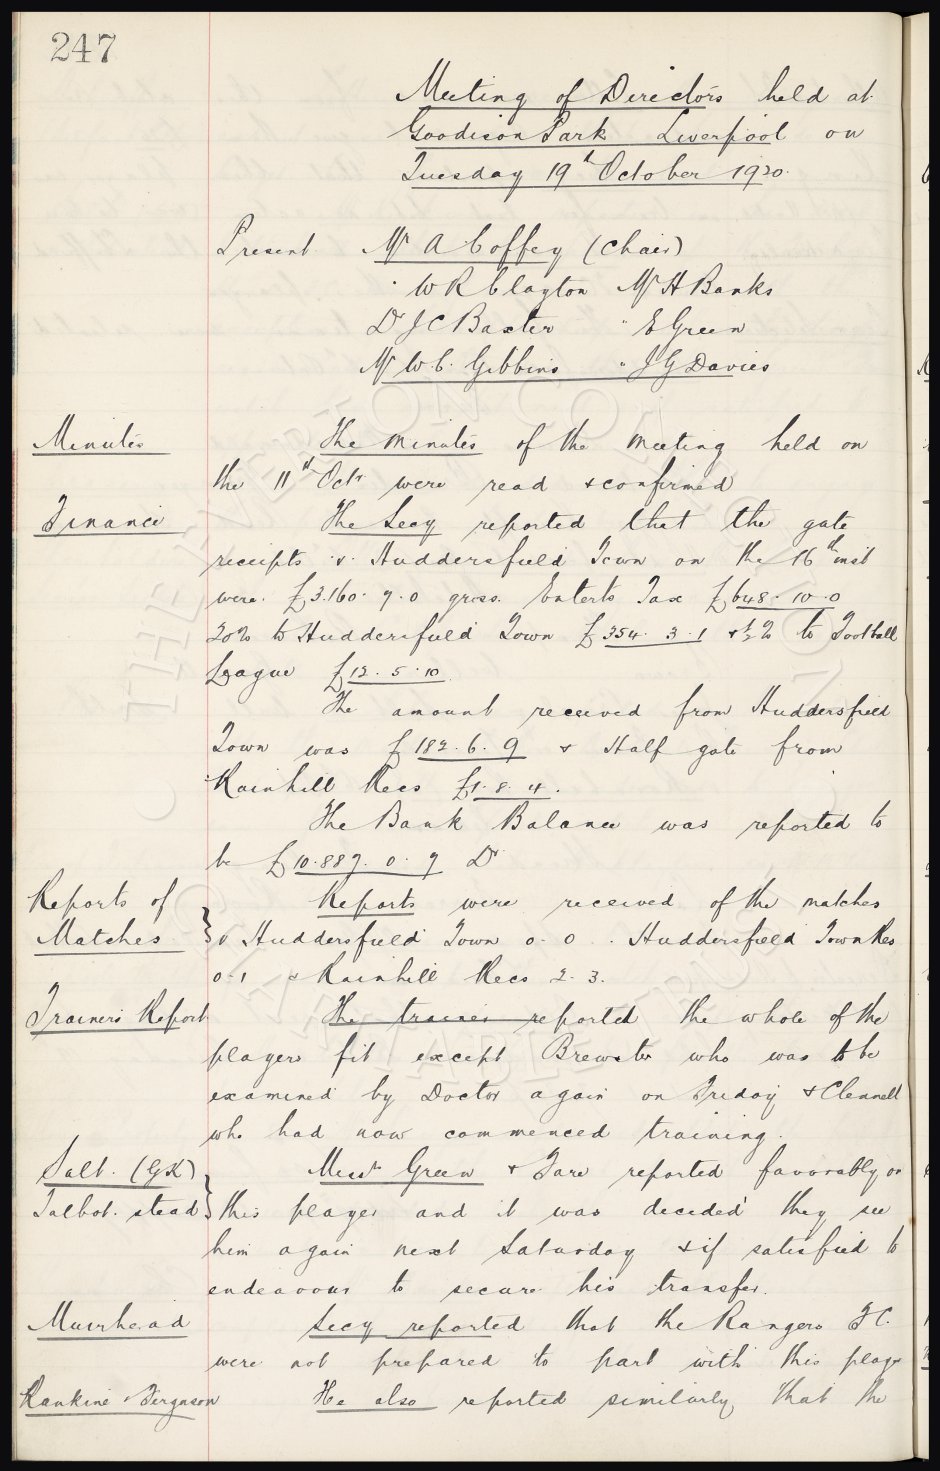 247
Meeting of Directors held at
Goodison Park Liverpool on
Tuesday 19th October 1920.
Present Mr A Coffey (Chair)
" W R Clayton Mr H Banks
Dr J C Baxter " E Green
Mr W.C. Gibbins " J G Davies
Minutes The minutes of the meeting held on
the 11th Octr were read & confirmed
Finance The Secy reported that the gate
receipts v. Huddersfield Town on the 16th inst
were. £3.160. 7. 0 gross. Enterts Tax £648. 10. 0
20% to Huddersfield Town £354. 3. 1 & ½% to Football
League £12. 5. 10.
The amount received from Huddersfield
Town was £182. 6. 9 & Half gate from
Rainhill Recs £1. 8. 4.
The Bank Balance was reported to
be £10.887. 0. 7 Dr
Reports of Reports were received of the matches
Matches } v Huddersfield Town 0-0. Huddersfield Town Res
0-1 & Rainhill Recs 2-3.
Trainers Report The trainer reported the whole of the
players fit except Brewster who was to be
examined by Doctor again on Friday & Clennell
who had now commenced training.
Salt. (GK) Messrs Green & Fare reported favorably on
Talbot. stead } this player and it was decided they see
him again next Saturday & if satisfied to
endeavour to secure his transfer.
Muirhead Secy reported that the Rangers F.C.
were not prepared to part with this player
Rankine & Ferguson He also reported similarly that the